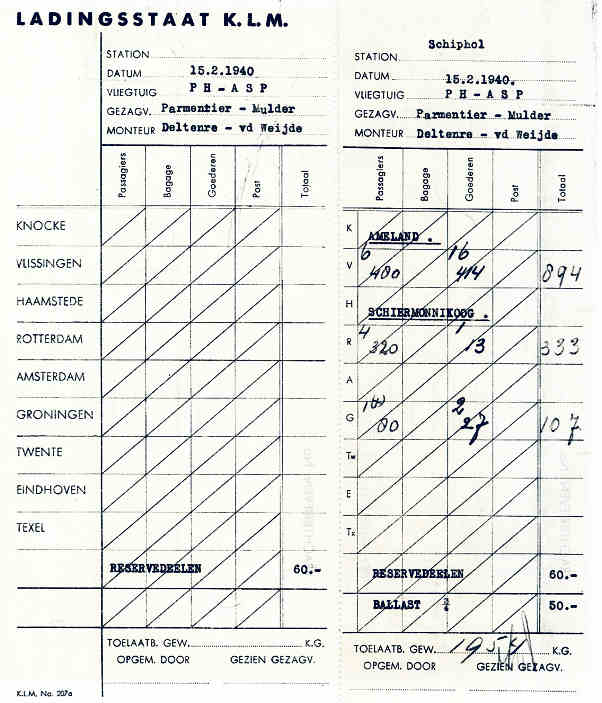 LADINGSSTAAT K.L.M.
STATION
DATUM 15.2.1940
VLIEGTUIG PH-ASP
GEZAGV. Parmentier - Mulder
MONTEUR Deltenre - vd Weijde
Passagiers Bagage Goederen Post Totaal
KNOCKE
VLISSINGEN
HAAMSTEDE
ROTTERDAM
AMSTERDAM
GRONINGEN
TWENTE
EINDHOVEN
TEXEL
RESERVEDEELEN 60.-
TOELAATB. GEW. K.G.
OPGEM. DOOR GEZIEN GEZAGV.
K.L.M. No. 207a
Schiphol
STATION
DATUM 15.2.1940.
VLIEGTUIG PH-ASP
GEZAGV. Parmentier - Mulder
MONTEUR Deltenre - vd Weijde
Passagiers Bagage Goederen Post Totaal
K AMELAND.
6 16
V 480 414 894
H SCHIERMONNIKOOG.
4 1
R 320 13 333
A
2
G 80 27 107
Tw
E
Tx
RESERVEDEELEN 60.-
BALLAST 50.-
TOELAATB. GEW. K.G.
OPGEM. DOOR GEZIEN GEZAGV.